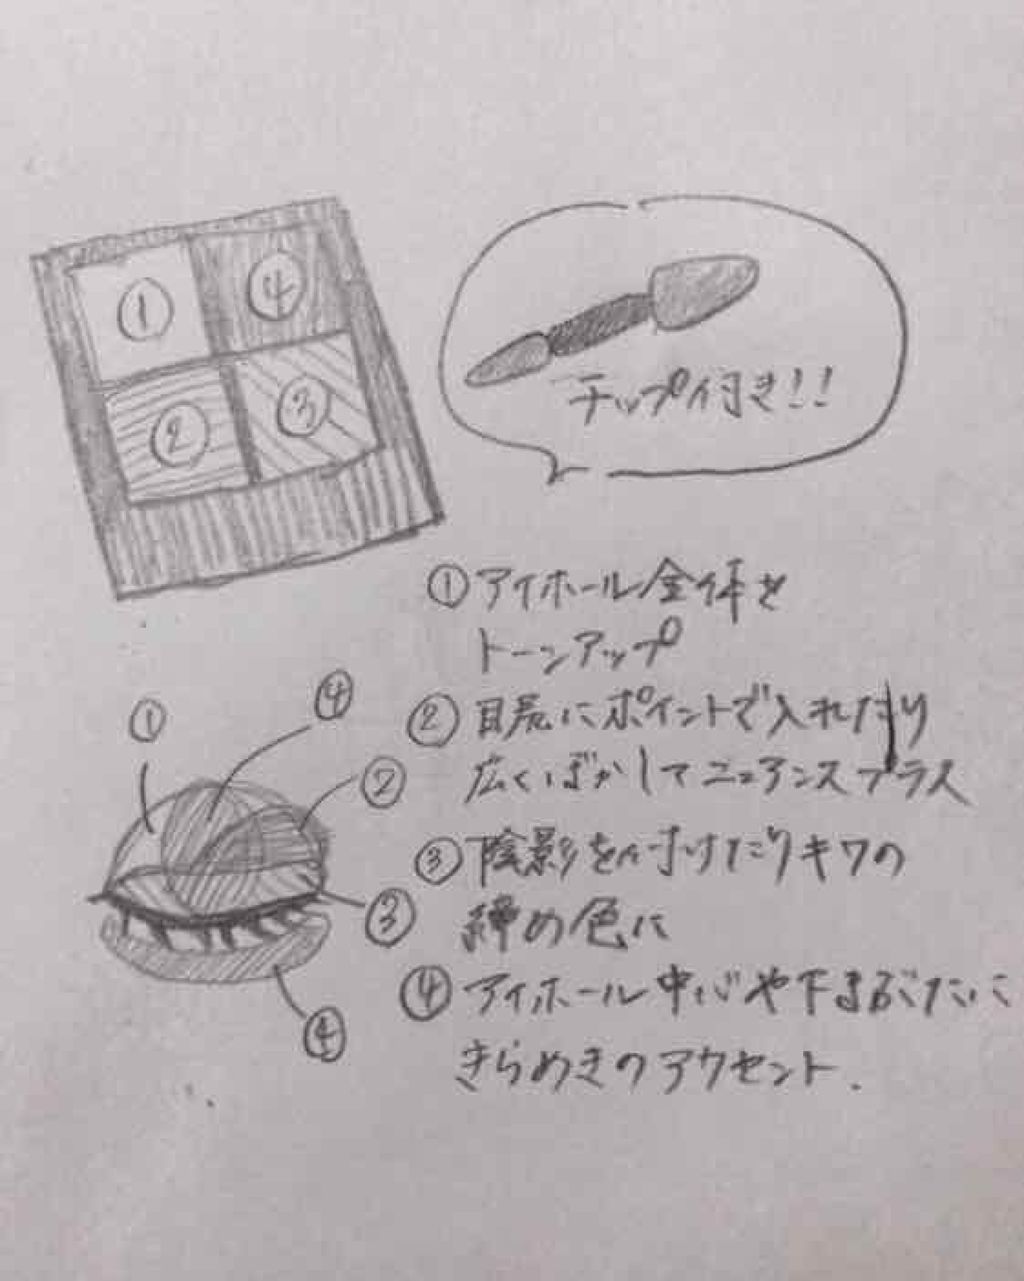 ① ④
② ③
チップ付き!!
①アイホール全体を
トーンアップ
④
①
②目尻にポイントで入れたり
②
広くぼかしてニュアンスプラス
③陰影を付けたりキワの
③
締め色に
④アイホール中心や下まぶたに
④
きらめきのアクセント.